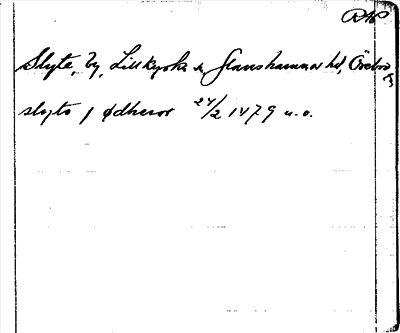 RAP
Slyte, by, Lillkyrka sn, Glanshammar hd, Örebro
slyto j ødheror 24/2 1479 u.o.